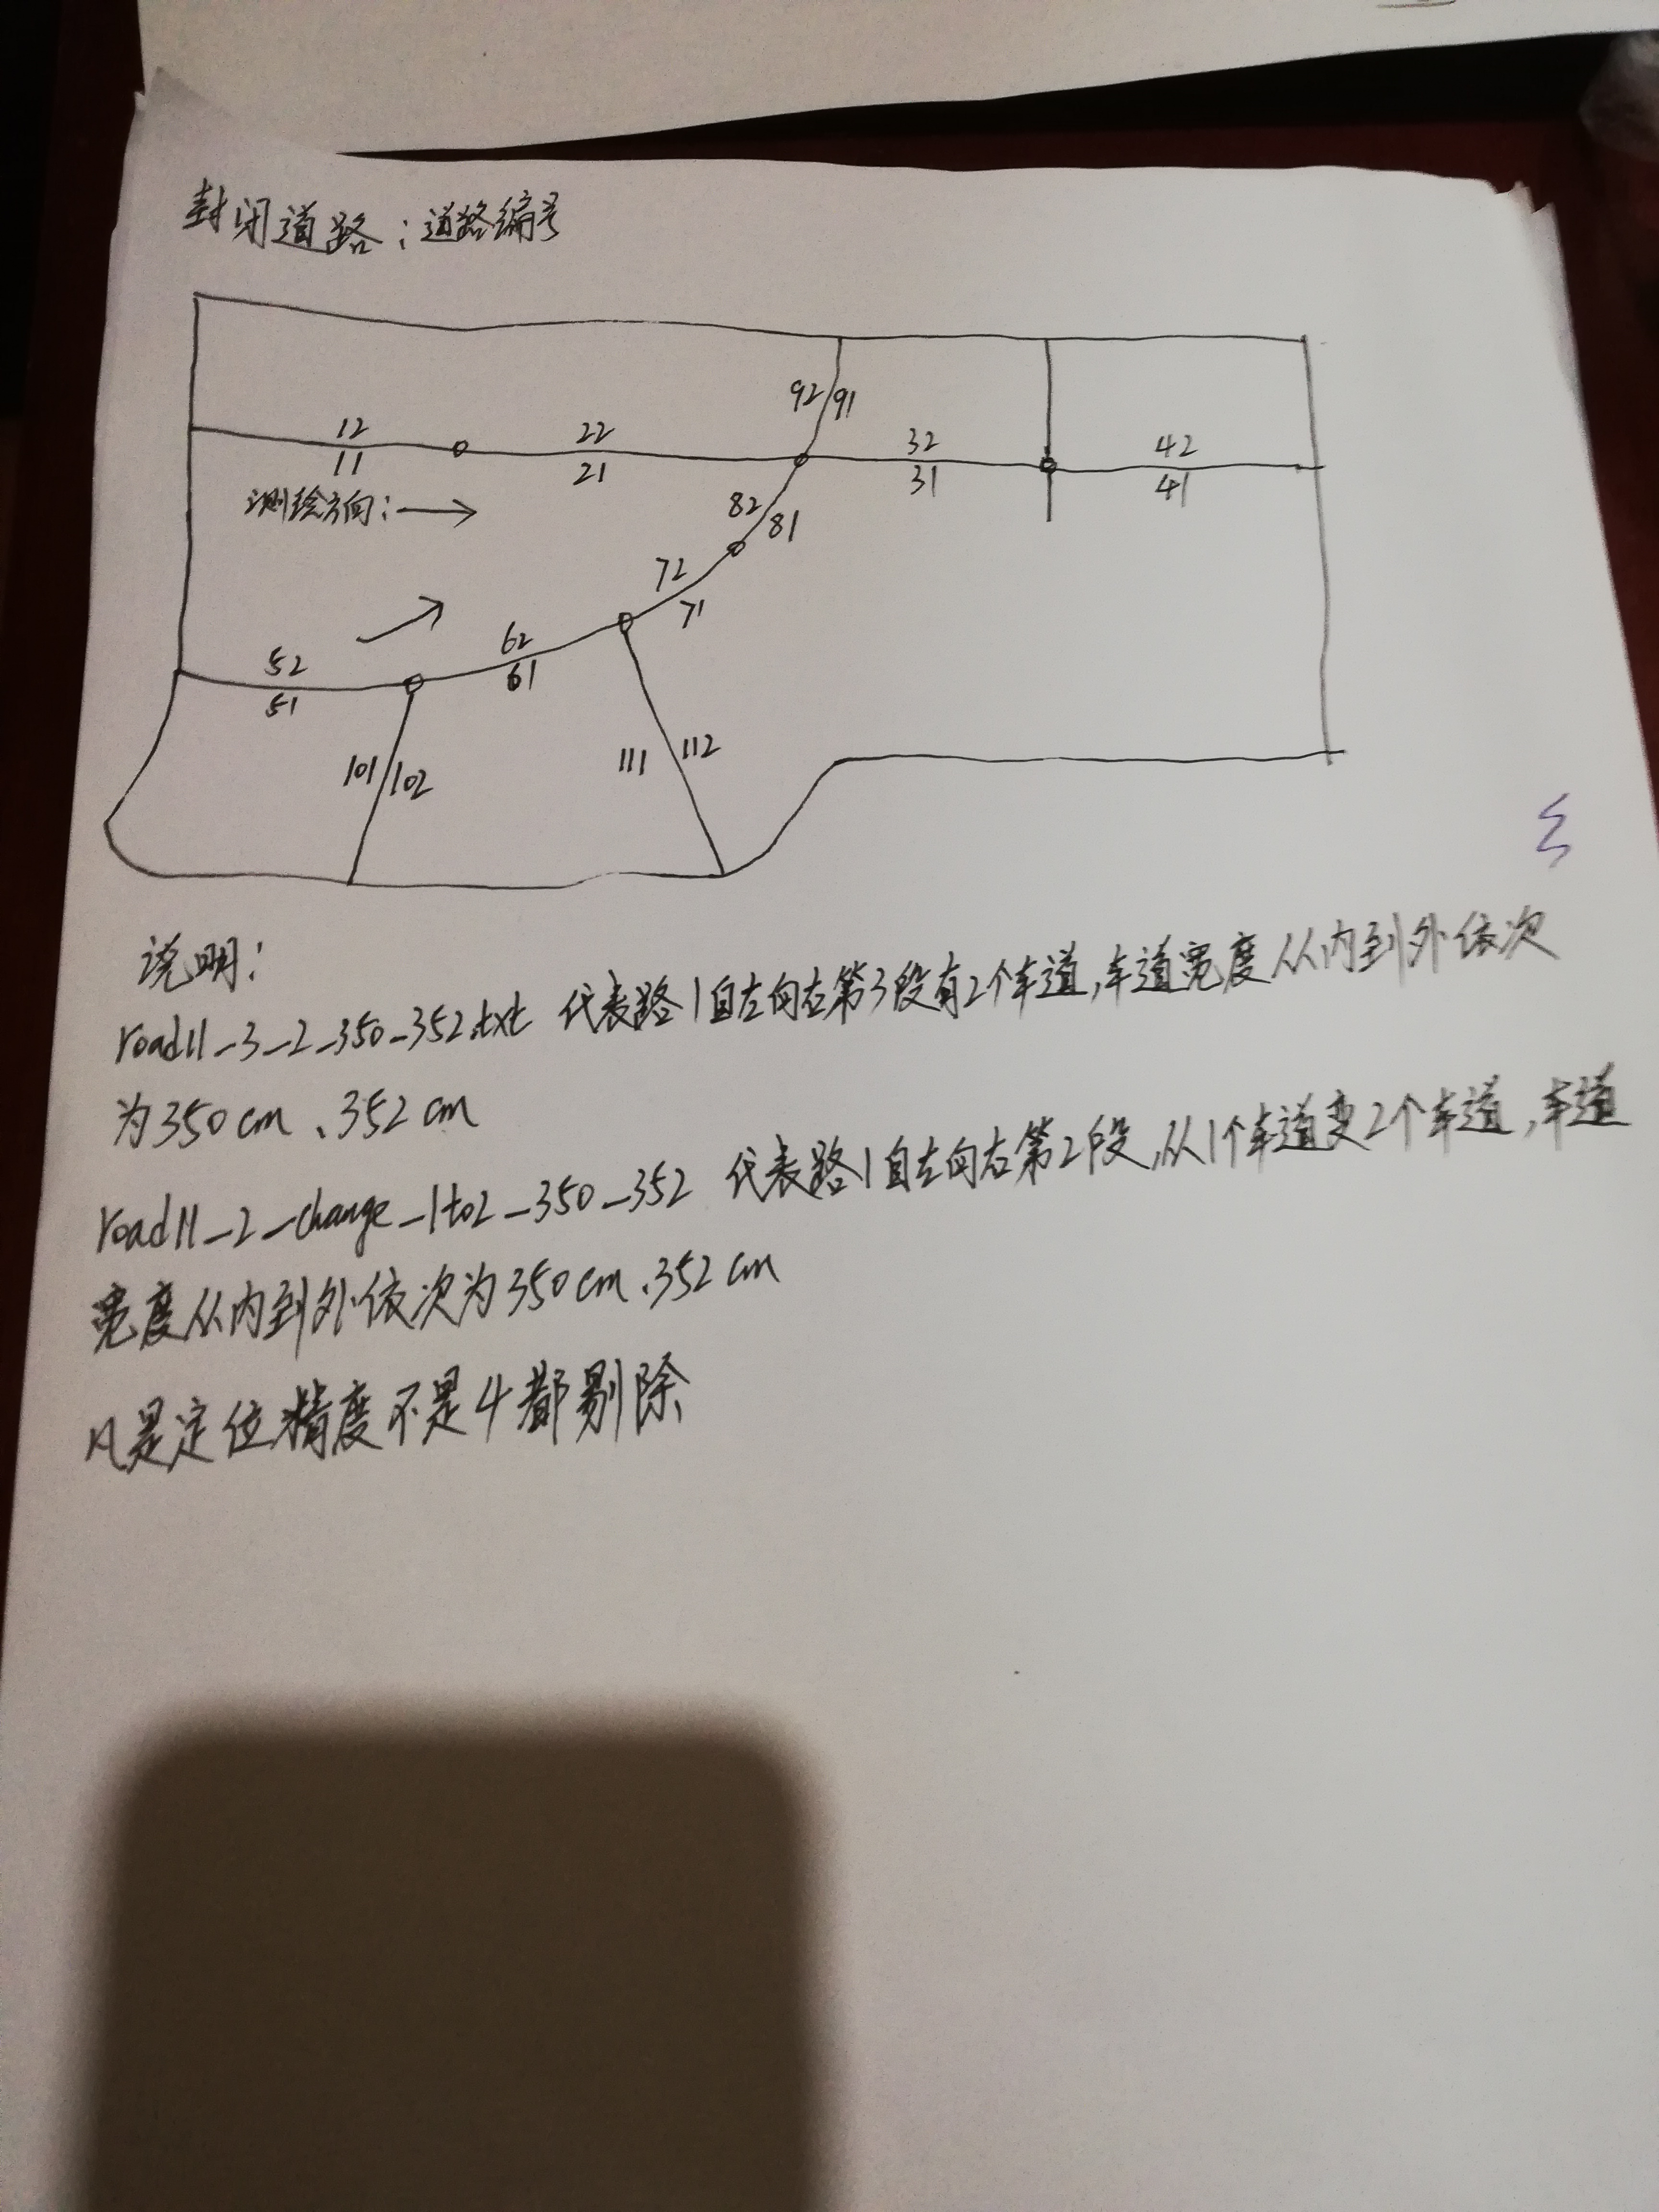 封闭道路：道路编号
92 91
12 22 32 42
11 21 31 41
测绘方向：
82 81
72
71
62
52 61
51
101 102 111 112
说明：
road11_3_2_350_352.txt 代表路1自左向右第3段有2个车道,车道宽度从内到外依次
为350cm、352cm
road11_2_change_1to2_350_352 代表路1自左向右第2段,从1个车道变2个车道,车道
宽度从内到外依次为350cm、352cm
是定位精度不是4都剔除